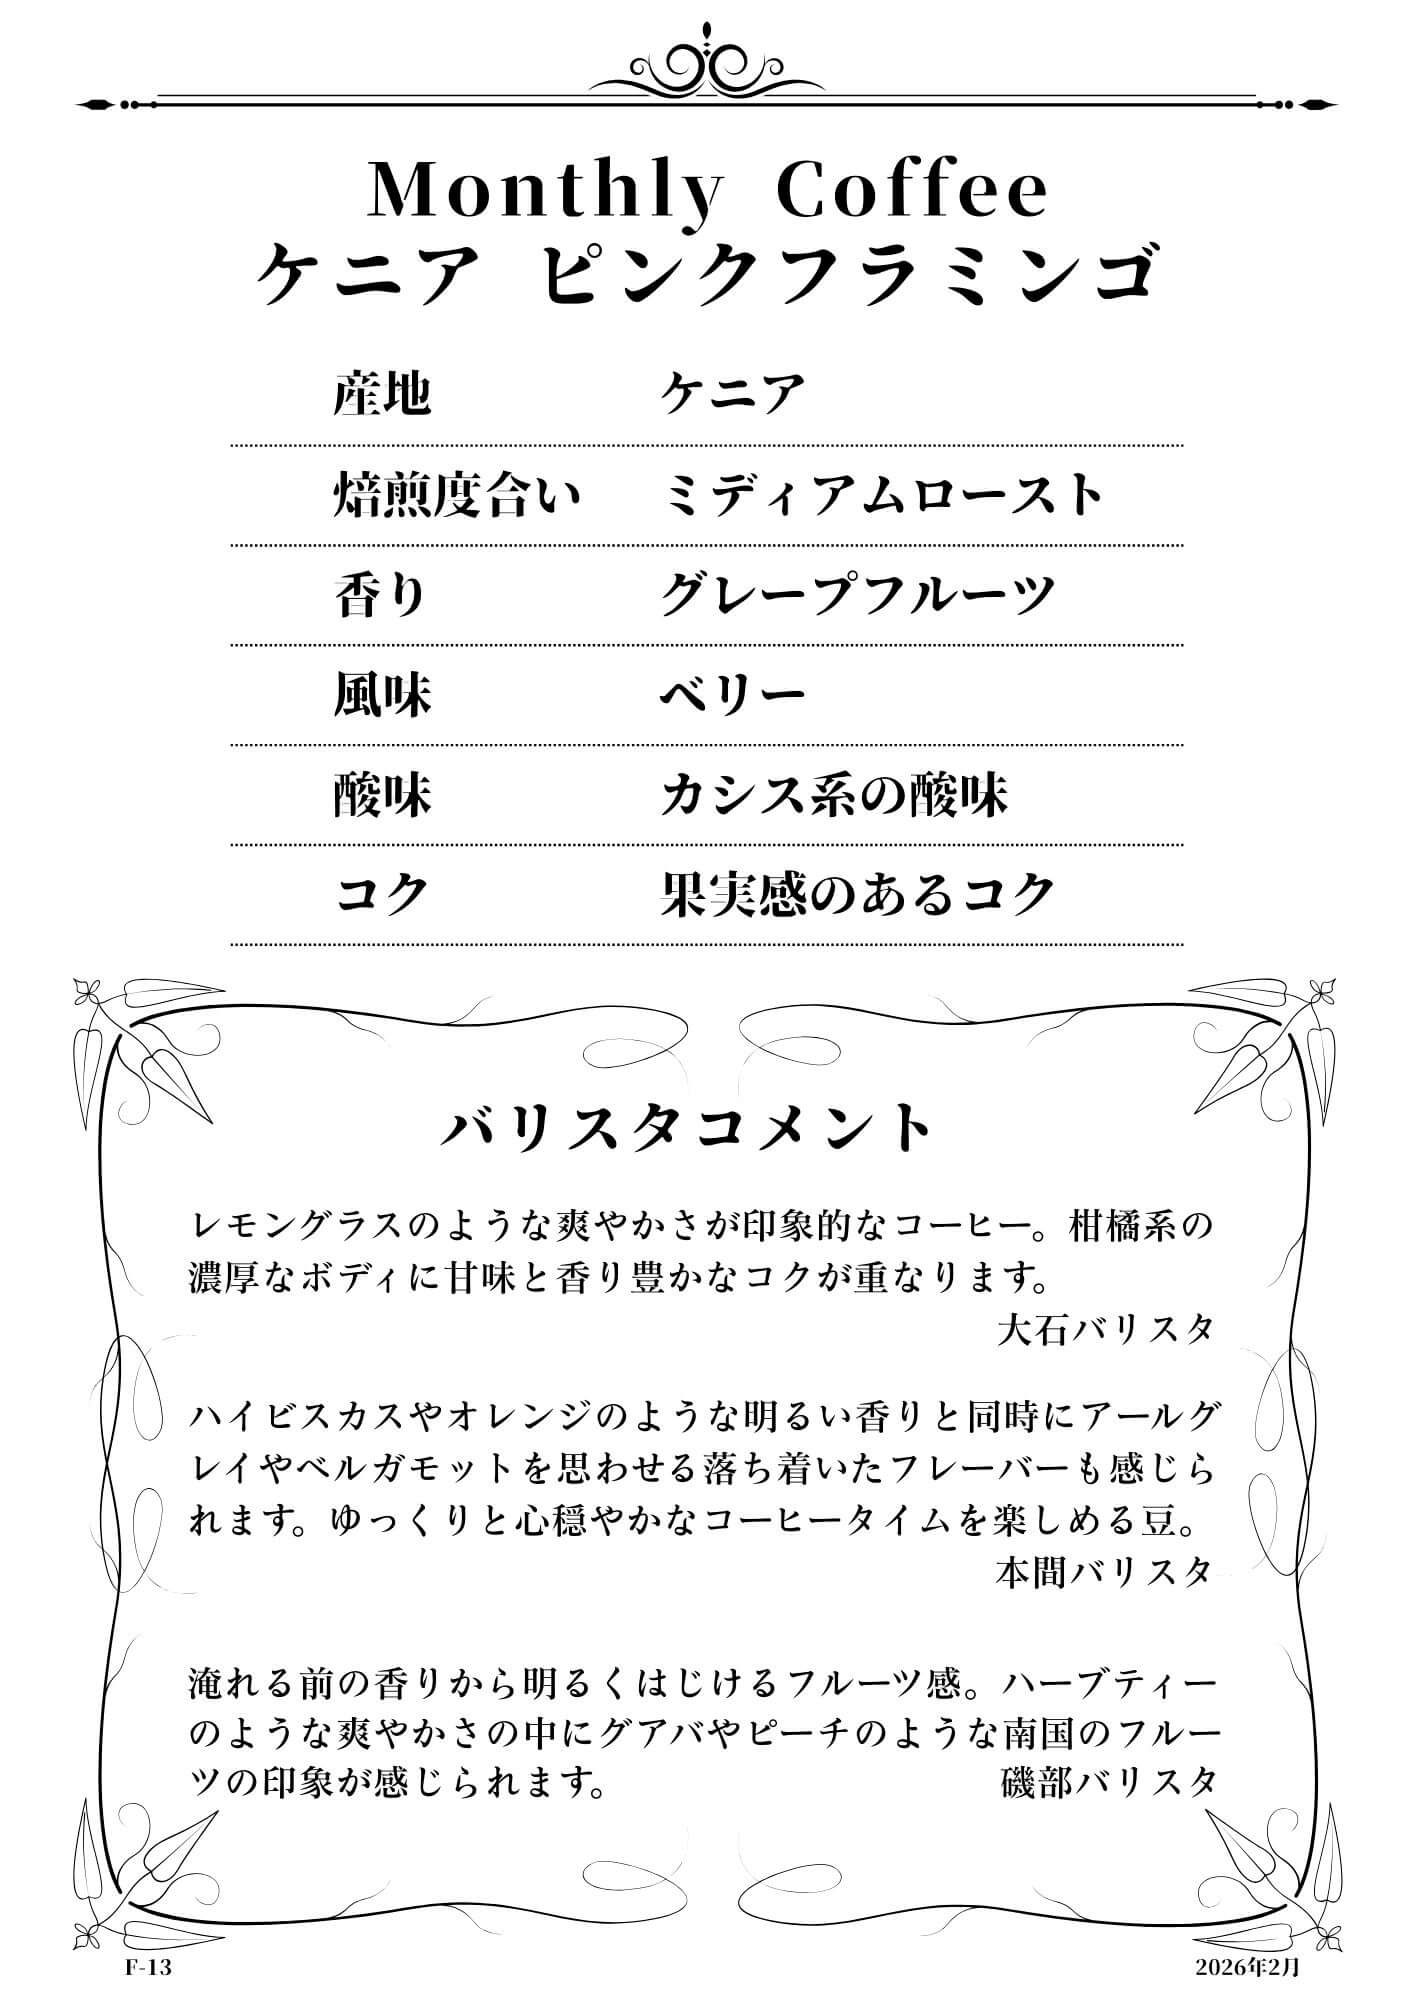 Monthly Coffee
ケニア ピンクフラミンゴ
産地 ケニア
焙煎度合い ミディアムロースト
香り グレープフルーツ
風味 ベリー
酸味 カシス系の酸味
コク 果実感のあるコク
バリスタコメント
レモングラスのような爽やかさが印象的なコーヒー。柑橘系の
濃厚なボディに甘味と香り豊かなコクが重なります。
大石バリスタ
ハイビスカスやオレンジのような明るい香りと同時にアールグ
レイやベルガモットを思わせる落ち着いたフレーバーも感じら
れます。ゆっくりと心穏やかなコーヒータイムを楽しめる豆。
本間バリスタ
淹れる前の香りから明るくはじけるフルーツ感。ハーブティー
のような爽やかさの中にグアバやピーチのような南国のフルー
ツの印象が感じられます。 磯部バリスタ
F-13 2026年2月